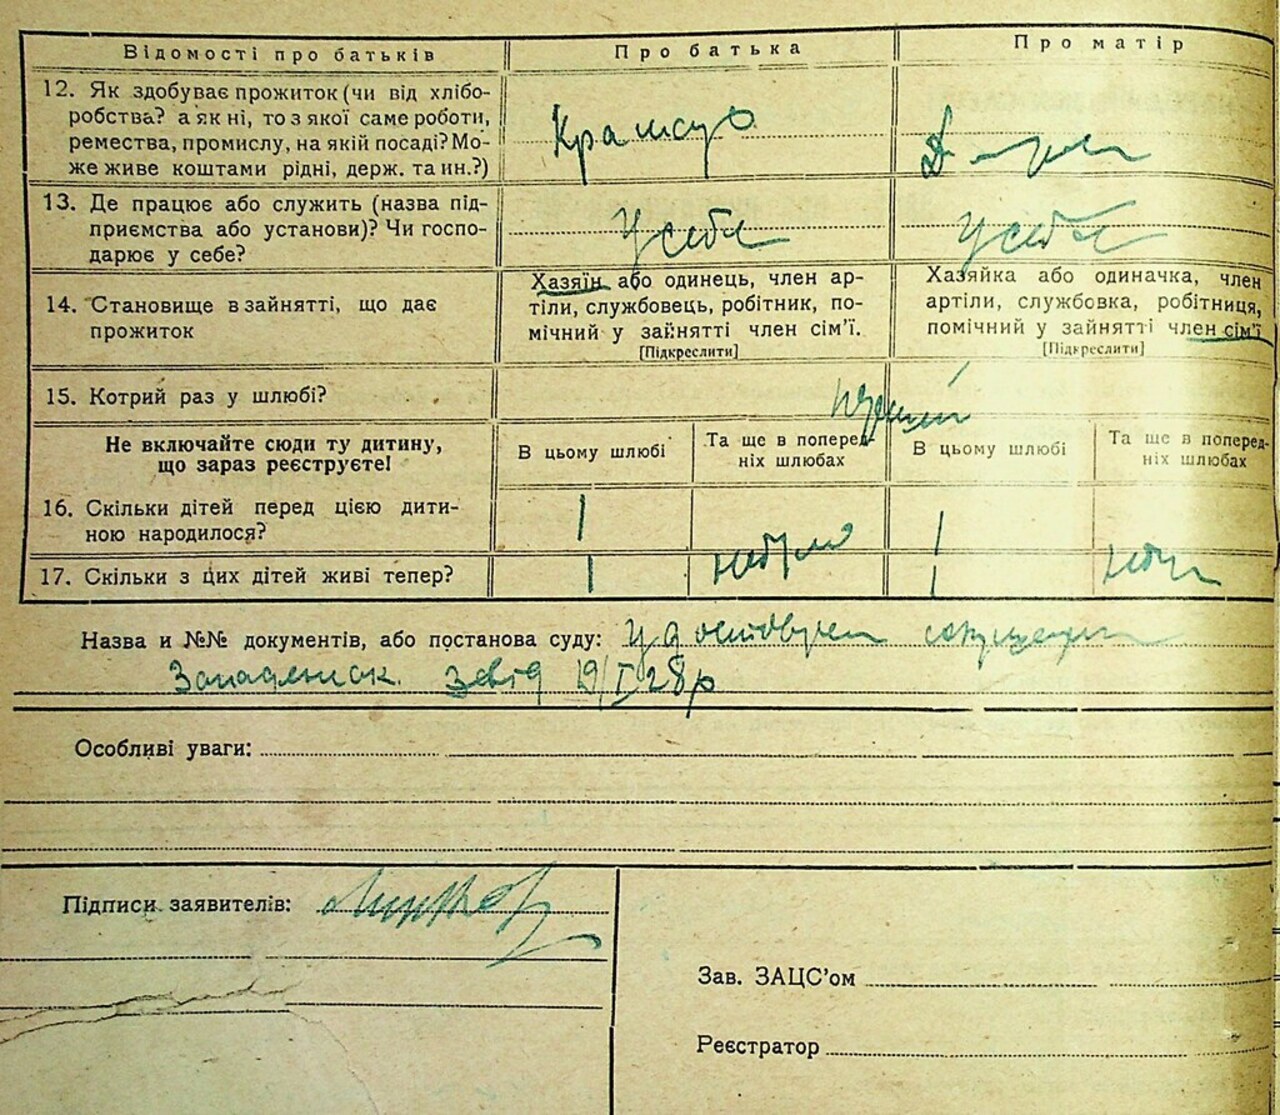 Відомості про батьків Про батька Про матір
12. Як здобуває прожиток (чи від хлібо-
робства? а як ні, то з якої саме роботи,
ремества, промислу, на якій посаді? Мо-
же живе коштами рідні, держ. та ин.?)
13. Де працює або служить (назва під-
приємства або установи)? Чи госпо-
дарює у себе?
У себе У себе
14. Становище в зайнятті, що дає
прожиток
Хазяїн або одинець, член ар-
тіли, службовець, робітник, по-
мічний у зайнятті член сім'ї.
[Підкреслити]
Хазяйка або одиначка, член
артіли, службовка, робітниця,
помічний у зайнятті член сім'ї
[Підкреслити]
15. Котрий раз у шлюбі?
Не включайте сюди ту дитину,
що зараз реєструєте!
В цьому шлюбі
Та ще в поперед-
ніх шлюбах
В цьому шлюбі
Та ще в поперед-
ніх шлюбах
16. Скільки дітей перед цією дити-
ною народилося?
1 1
17. Скільки з цих дітей живі тепер?
1 не було 1
Назва и №№ документів, або постанова суду:
19/I 28р
Особливі уваги:
Підписи заявителів:
Зав. ЗАЦС'ом
Реєстратор